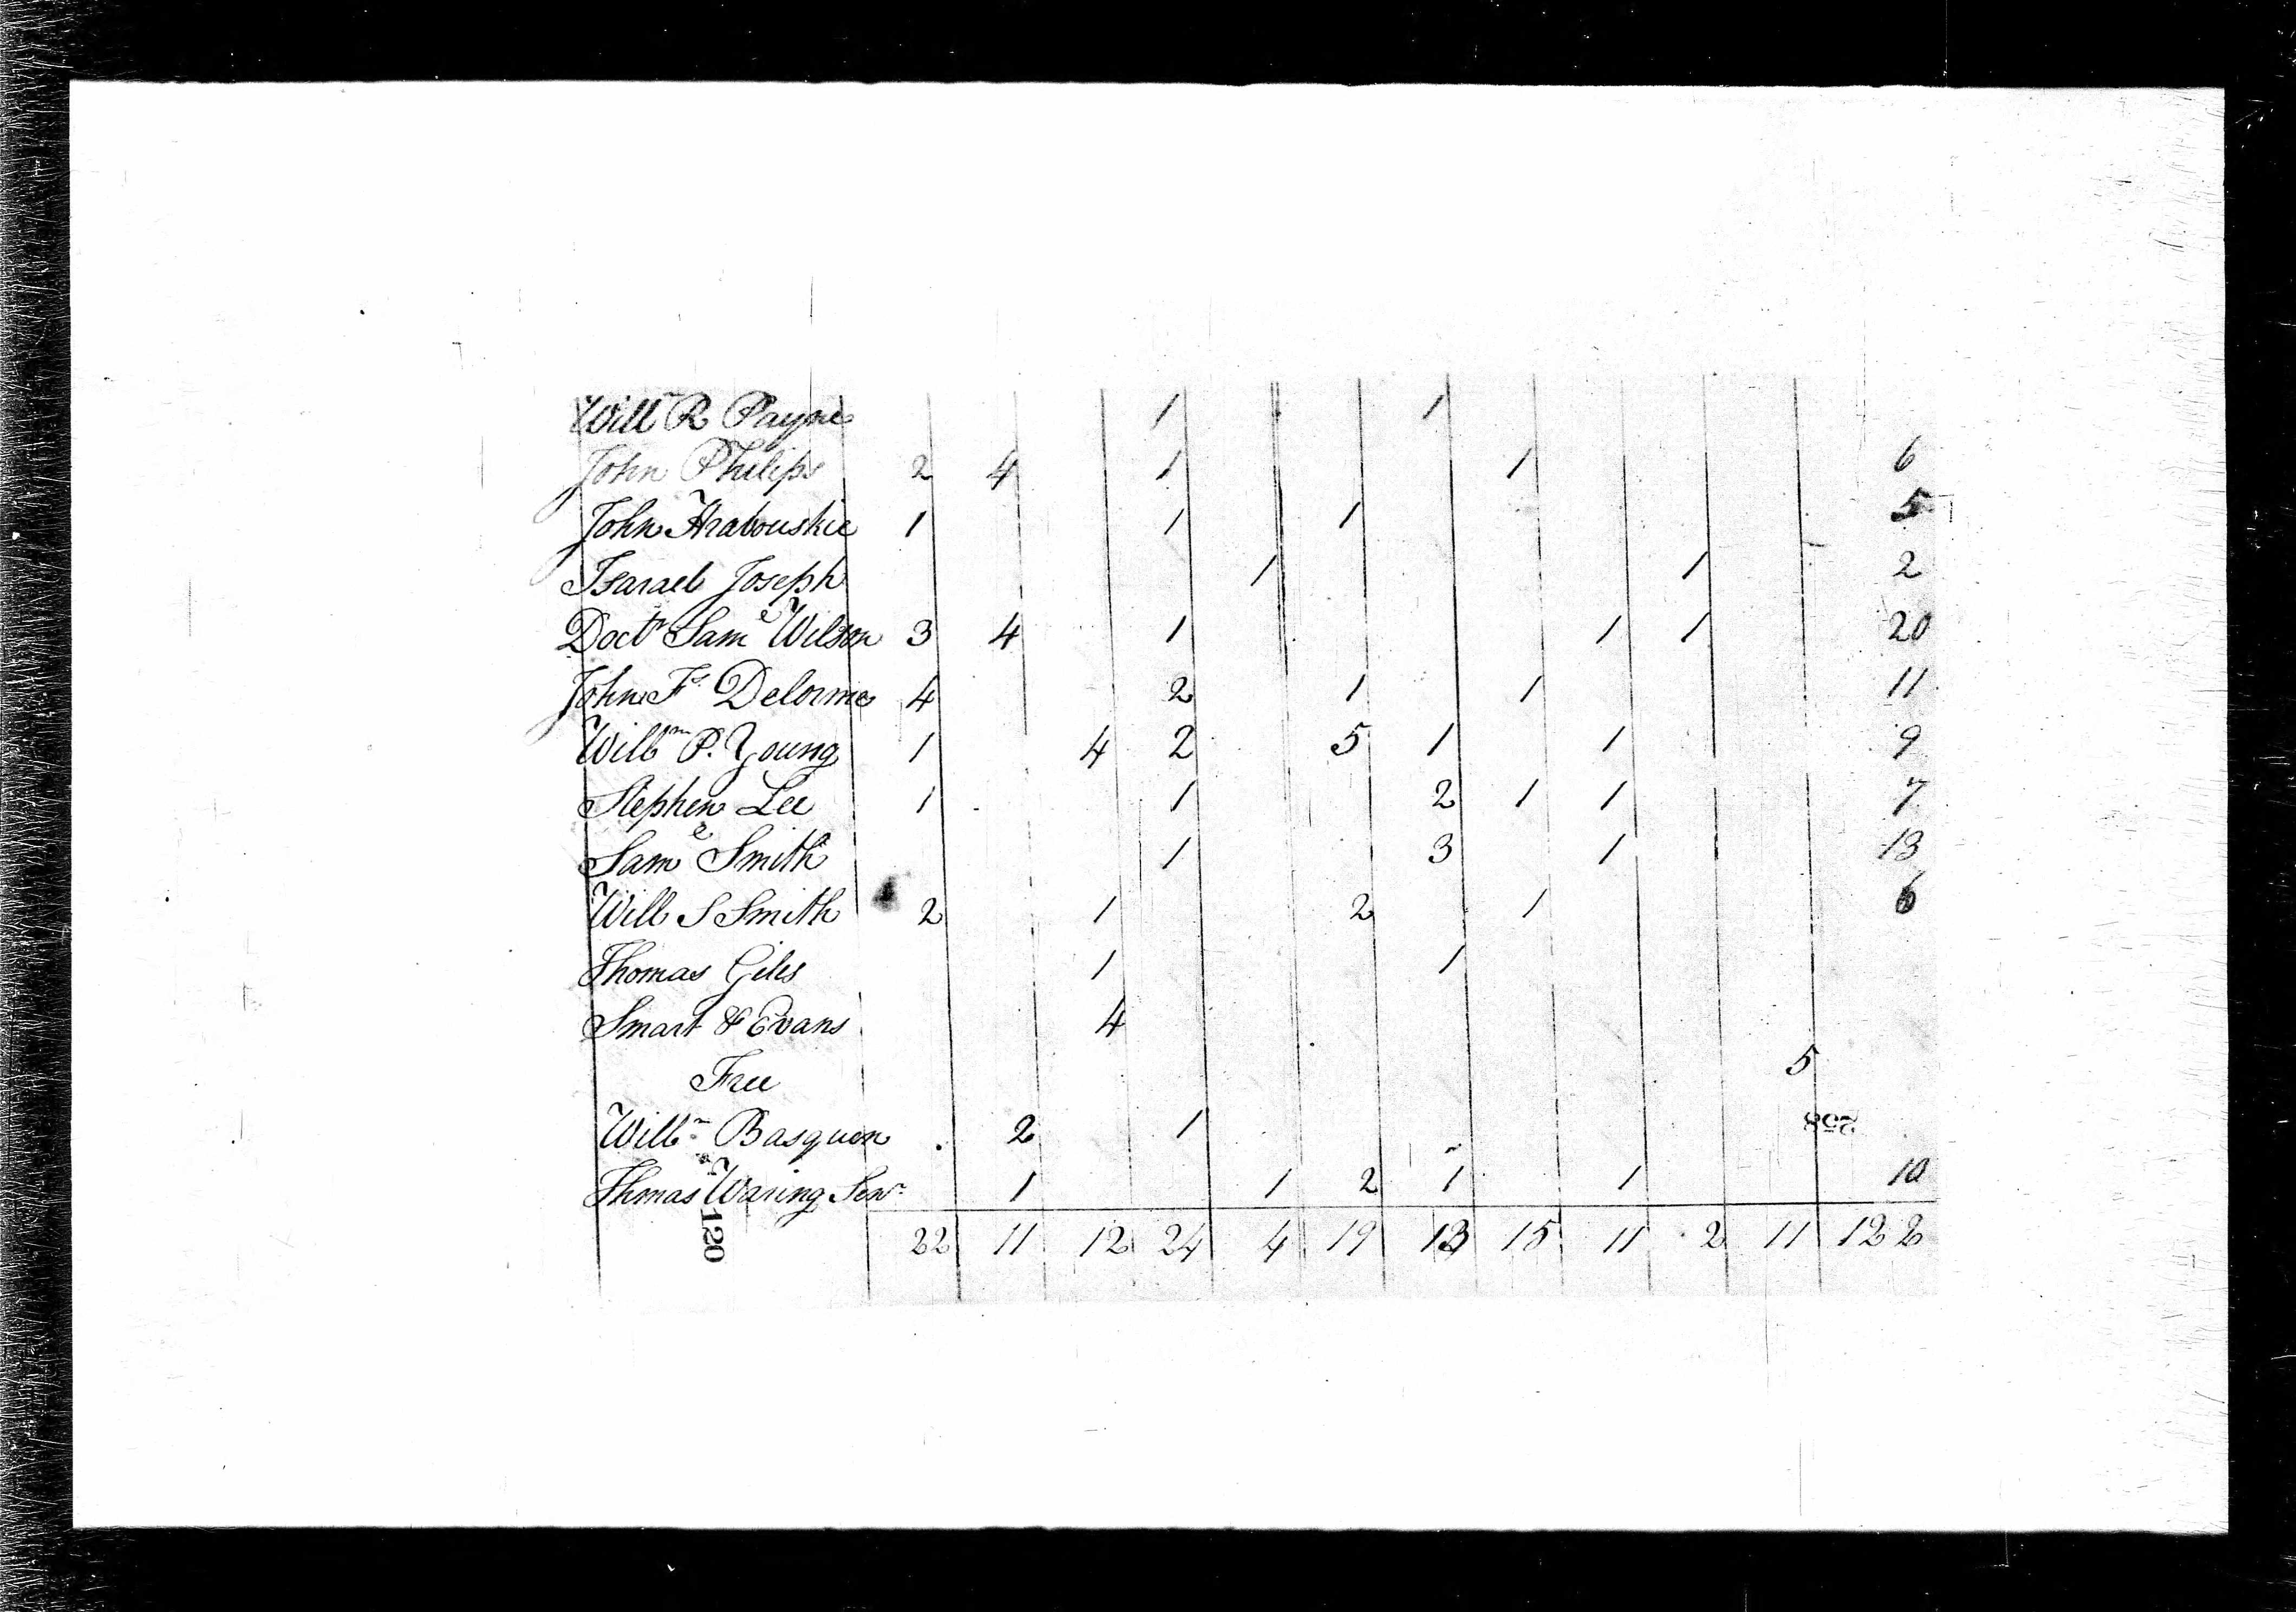 Will^m R Payne 1 1
John Philips 2 4 1 1 6
John Hrabouskie 1 1 1 5
Isarael Joseph 1 1 2
Doct^r Sam^l Wilson 3 4 1 1 1 20
John F^s Delorme 4 2 1 1 11
Will^m P. Young 1 4 2 5 1 1 9
Stephen Lee 1 1 2 1 1 7
Sam^l Smith 1 3 1 13
Will S Smith 2 1 2 1 6
Thomas Giles 1 1
Smart & Evans 4
Free 5
Will^m Basquen 2 1
258
Thomas Waring Sen^r 1 1 2 1 1 10
22 11 12 24 4 19 13 15 11 2 11 122
120